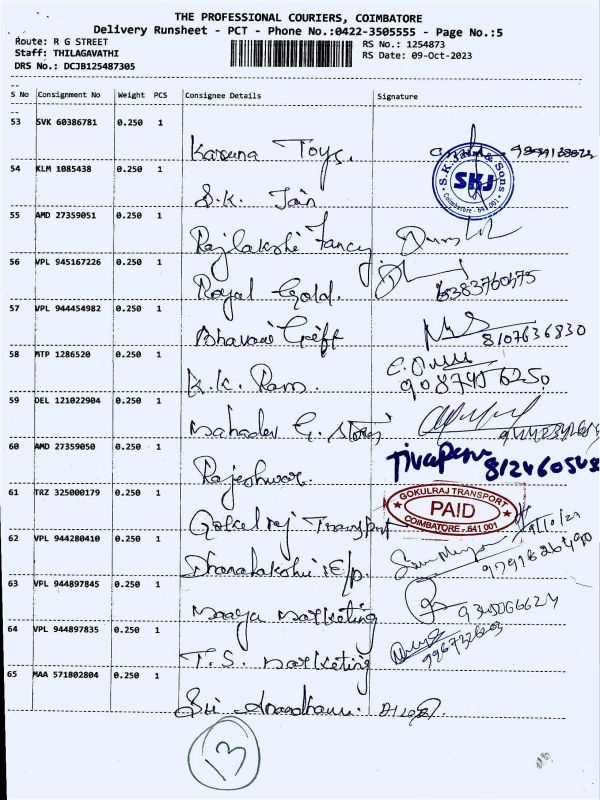 THE PROFESSIONAL COURIERS, COIMBATORE
Delivery Runsheet - PCT - Phone No.:0422-3505555 - Page No.:5
Route: R G STREET
RS No.: 1254873
Staff: THILAGAVATHI
RS Date: 09-Oct-2023
DRS No.: DCJB125487305
S No Consignment No Weight PCS Consignee Details Signature
53 SVK 60386781 0.250 1
Karuna Toys.
54 KLM 1085438 0.250 1
S.K. Jain & Sons
SKJ
Coimbatore - 641 001
S.K. Jain
55 AMD 27359051 0.250 1
Rajlakshi Fancy
56 VPL 945167226 0.250 1
Royal Gold. 6383760475
57 VPL 944454982 0.250 1
Bhavani Gift 8107636830
58 MTP 1286520 0.250 1
K.K. Ram.
59 DEL 121022904 0.250 1
Mahadev G. Stores
60 AMD 27359050 0.250 1
Rajeshwar. 812460548
61 TRZ 325000179 0.250 1
GOKULRAJ TRANSPORT
PAID
COIMBATORE - 641 001
Gokulraj Transport
62 VPL 944280410 0.250 1
Dhanalakshi E/p. 9791826490
63 VPL 944897845 0.250 1
Maaya Marketing 9345066624
64 VPL 944897835 0.250 1
T.S. Marketing
65 MAA 571802804 0.250 1
Sri
13